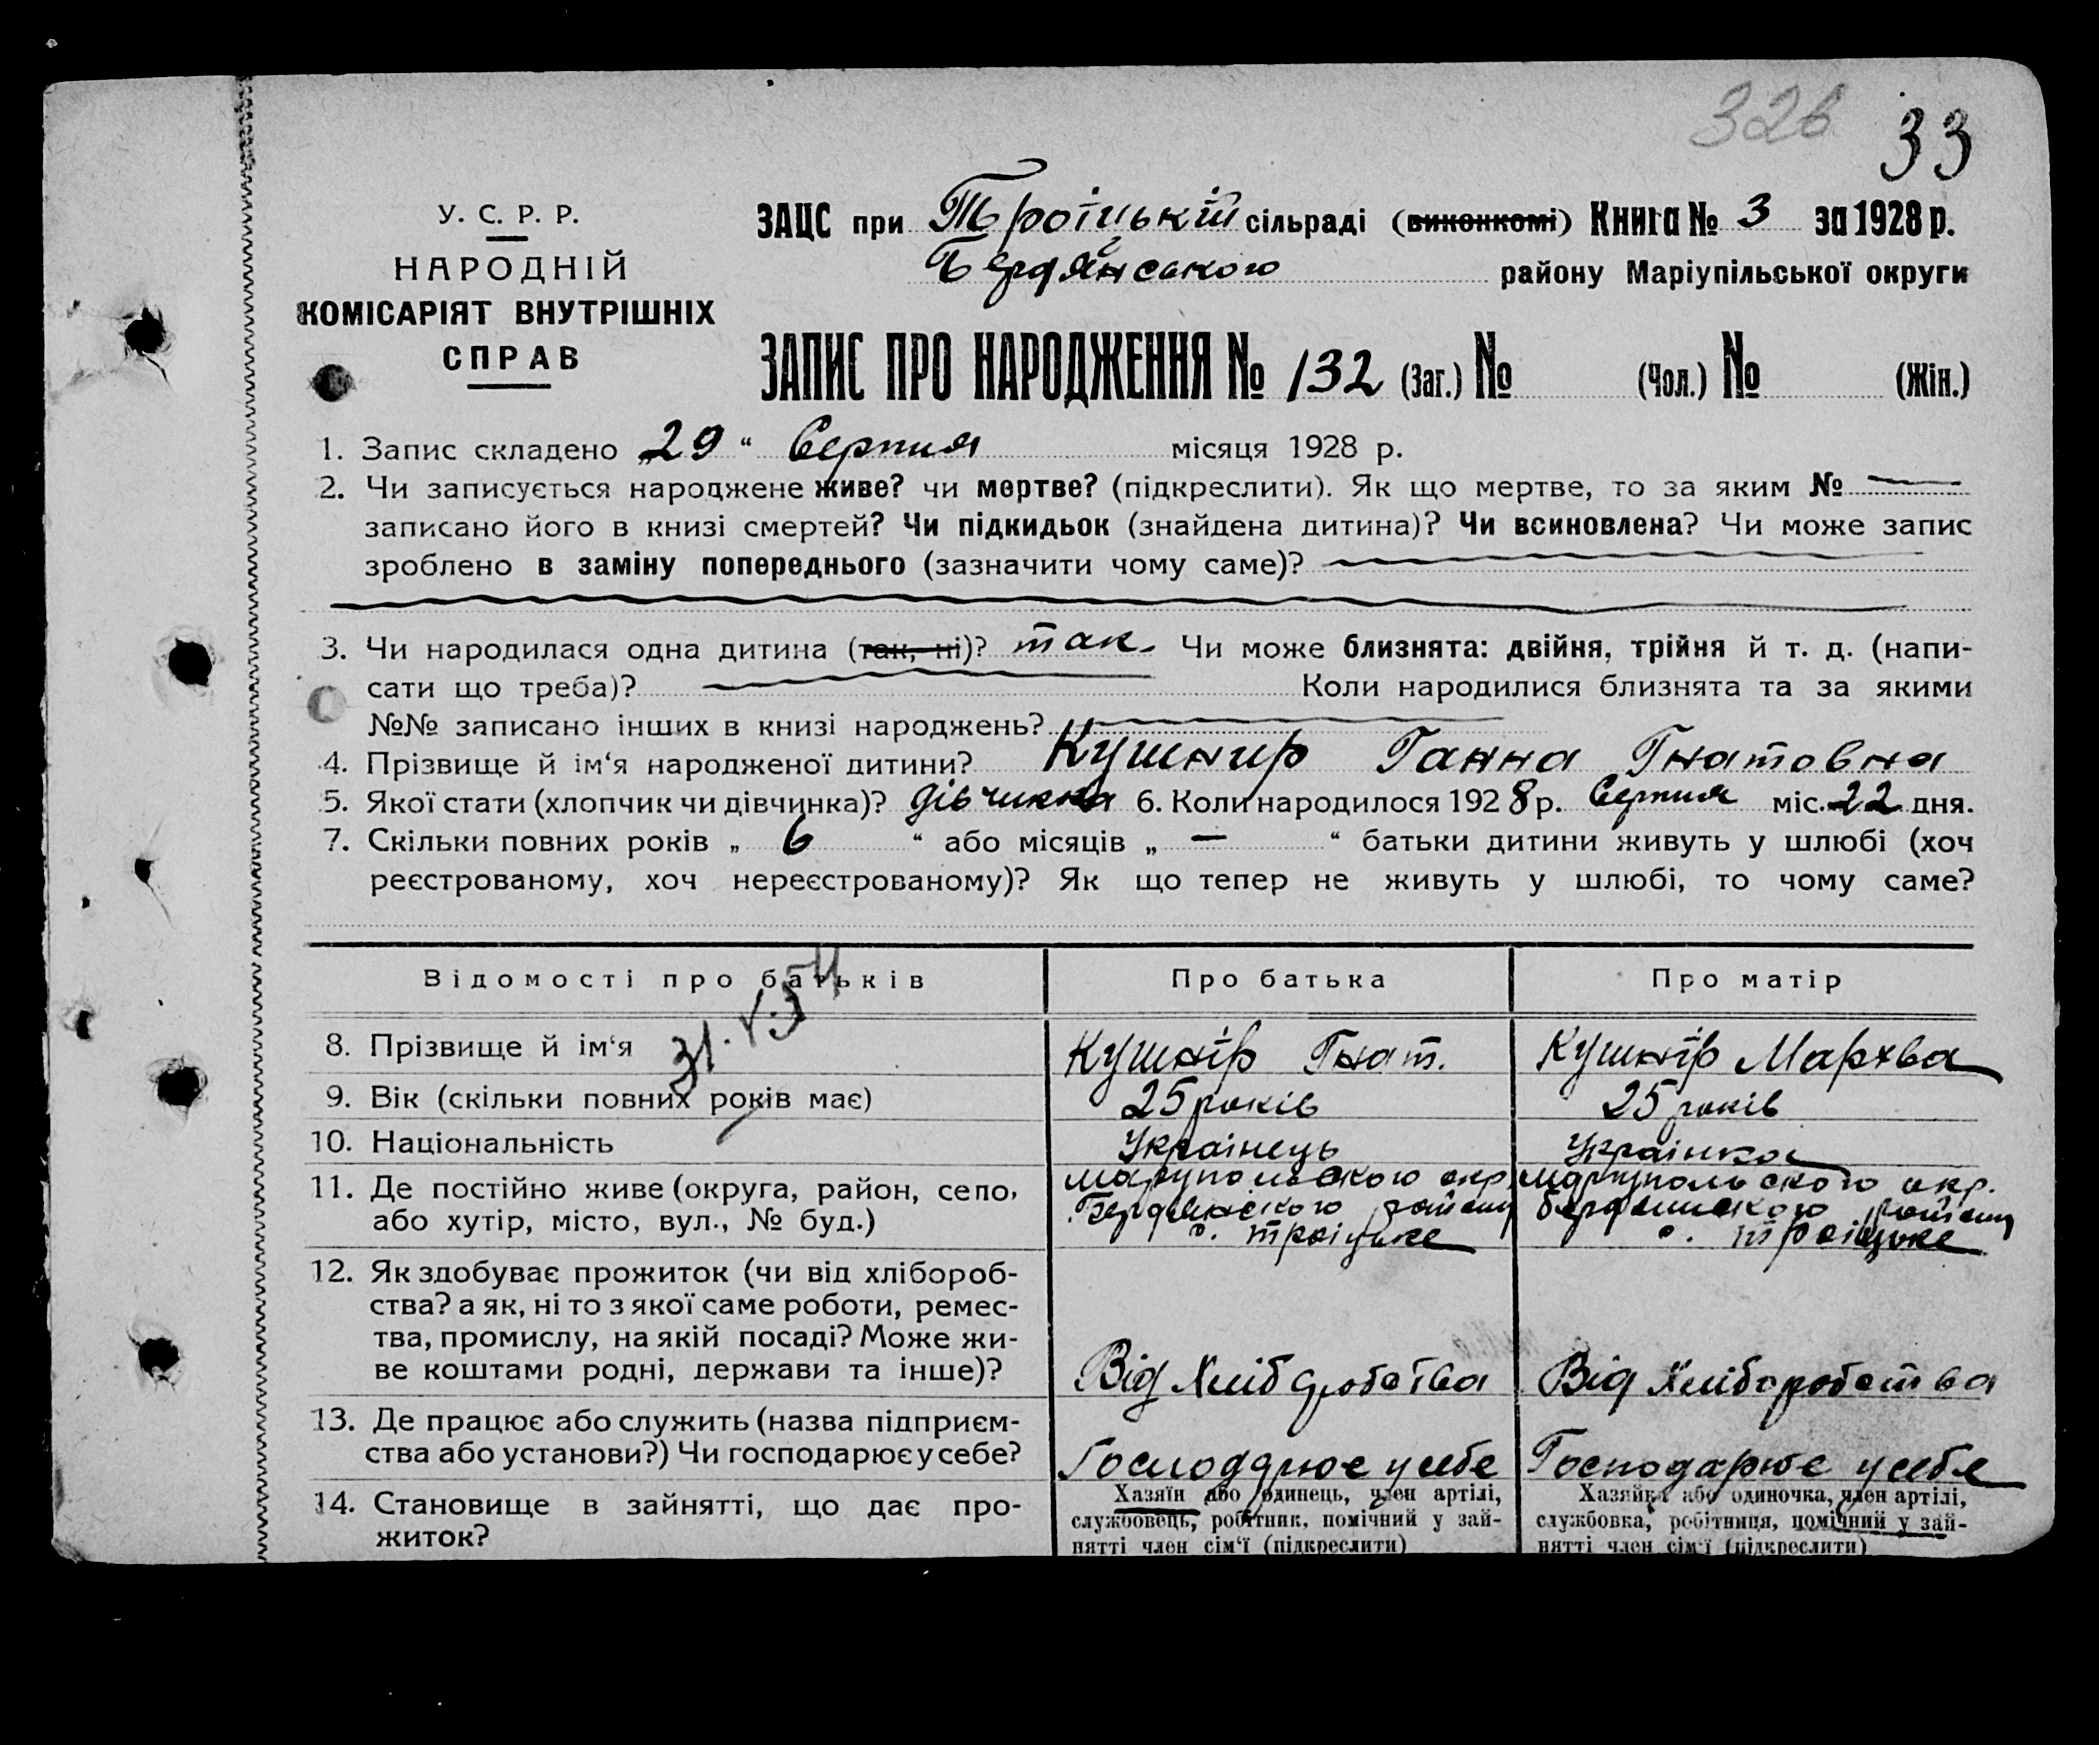 32в 33
У. С. Р. Р.
НАРОДНІЙ
КОМІСАРІЯТ ВНУТРІШНІХ
СПРАВ
ЗАЦС при Троіцькій сільраді (виконкомі) Книга № 3 за 1928 р.
Бердянського району Маріупільської округи
ЗАПИС ПРО НАРОДЖЕННЯ № 132 (Заг.) № (Чол.) № (Жін.)
1. Запис складено „29“ Серпня місяця 1928 р.
2. Чи записується народжене живе? чи мертве? (підкреслити). Як що мертве, то за яким №
записано його в книзі смертей? Чи підкидьок (знайдена дитина)? Чи всиновлена? Чи може запис
зроблено в заміну попереднього (зазначити чому саме)?
3. Чи народилася одна дитина (так, ні)? так. Чи може близнята: двійня, трійня й т. д. (напи-
сати що треба)? Коли народилися близнята та за якими
№№ записано інших в книзі народжень?
4. Прізвище й ім‘я народженої дитини? Кушнир Ганна Гнатовна
5. Якої стати (хлопчик чи дівчинка)? дівчинка 6. Коли народилося 1928 р. Серпня міс. 22 дня.
7. Скільки повних років „ 6 “ або місяців „ — “ батьки дитини живуть у шлюбі (хоч
реєстрованому, хоч нереєстрованому)? Як що тепер не живуть у шлюбі, то чому саме?
Відомості про батьків Про батька Про матір
8. Прізвище й ім‘я Кушнір Гнат. Кушнір Мархва
9. Вік (скільки повних років має) 25 років 25 років
10. Національність Українець Українка
11. Де постійно живе (округа, район, село, Маріупольского окр. Маріупольского окр.
або хутір, місто, вул., № буд.) Бердянского району Бердянского району
с. Троіцьке с. Троіцьке
12. Як здобуває прожиток (чи від хлібороб-
ства? а як, ні то з якої саме роботи, ремес-
тва, промислу, на якій посаді? Може жи-
ве коштами родні, держави та інше)? Від Хліборобства Від Хліборобства
13. Де працює або служить (назва підприєм-
ства або установи?) Чи господарює у себе? Господарює у себе Господарює у себе
14. Становище в зайнятті, що дає про- Хазяїн або одинець, член артілі, Хазяйка або одиночка, член артілі,
житок? службовець, робітник, помічний у зай- службовка, робітниця, помічний у зай-
нятті член сім‘ї (підкреслити) нятті член сім‘ї (підкреслити)